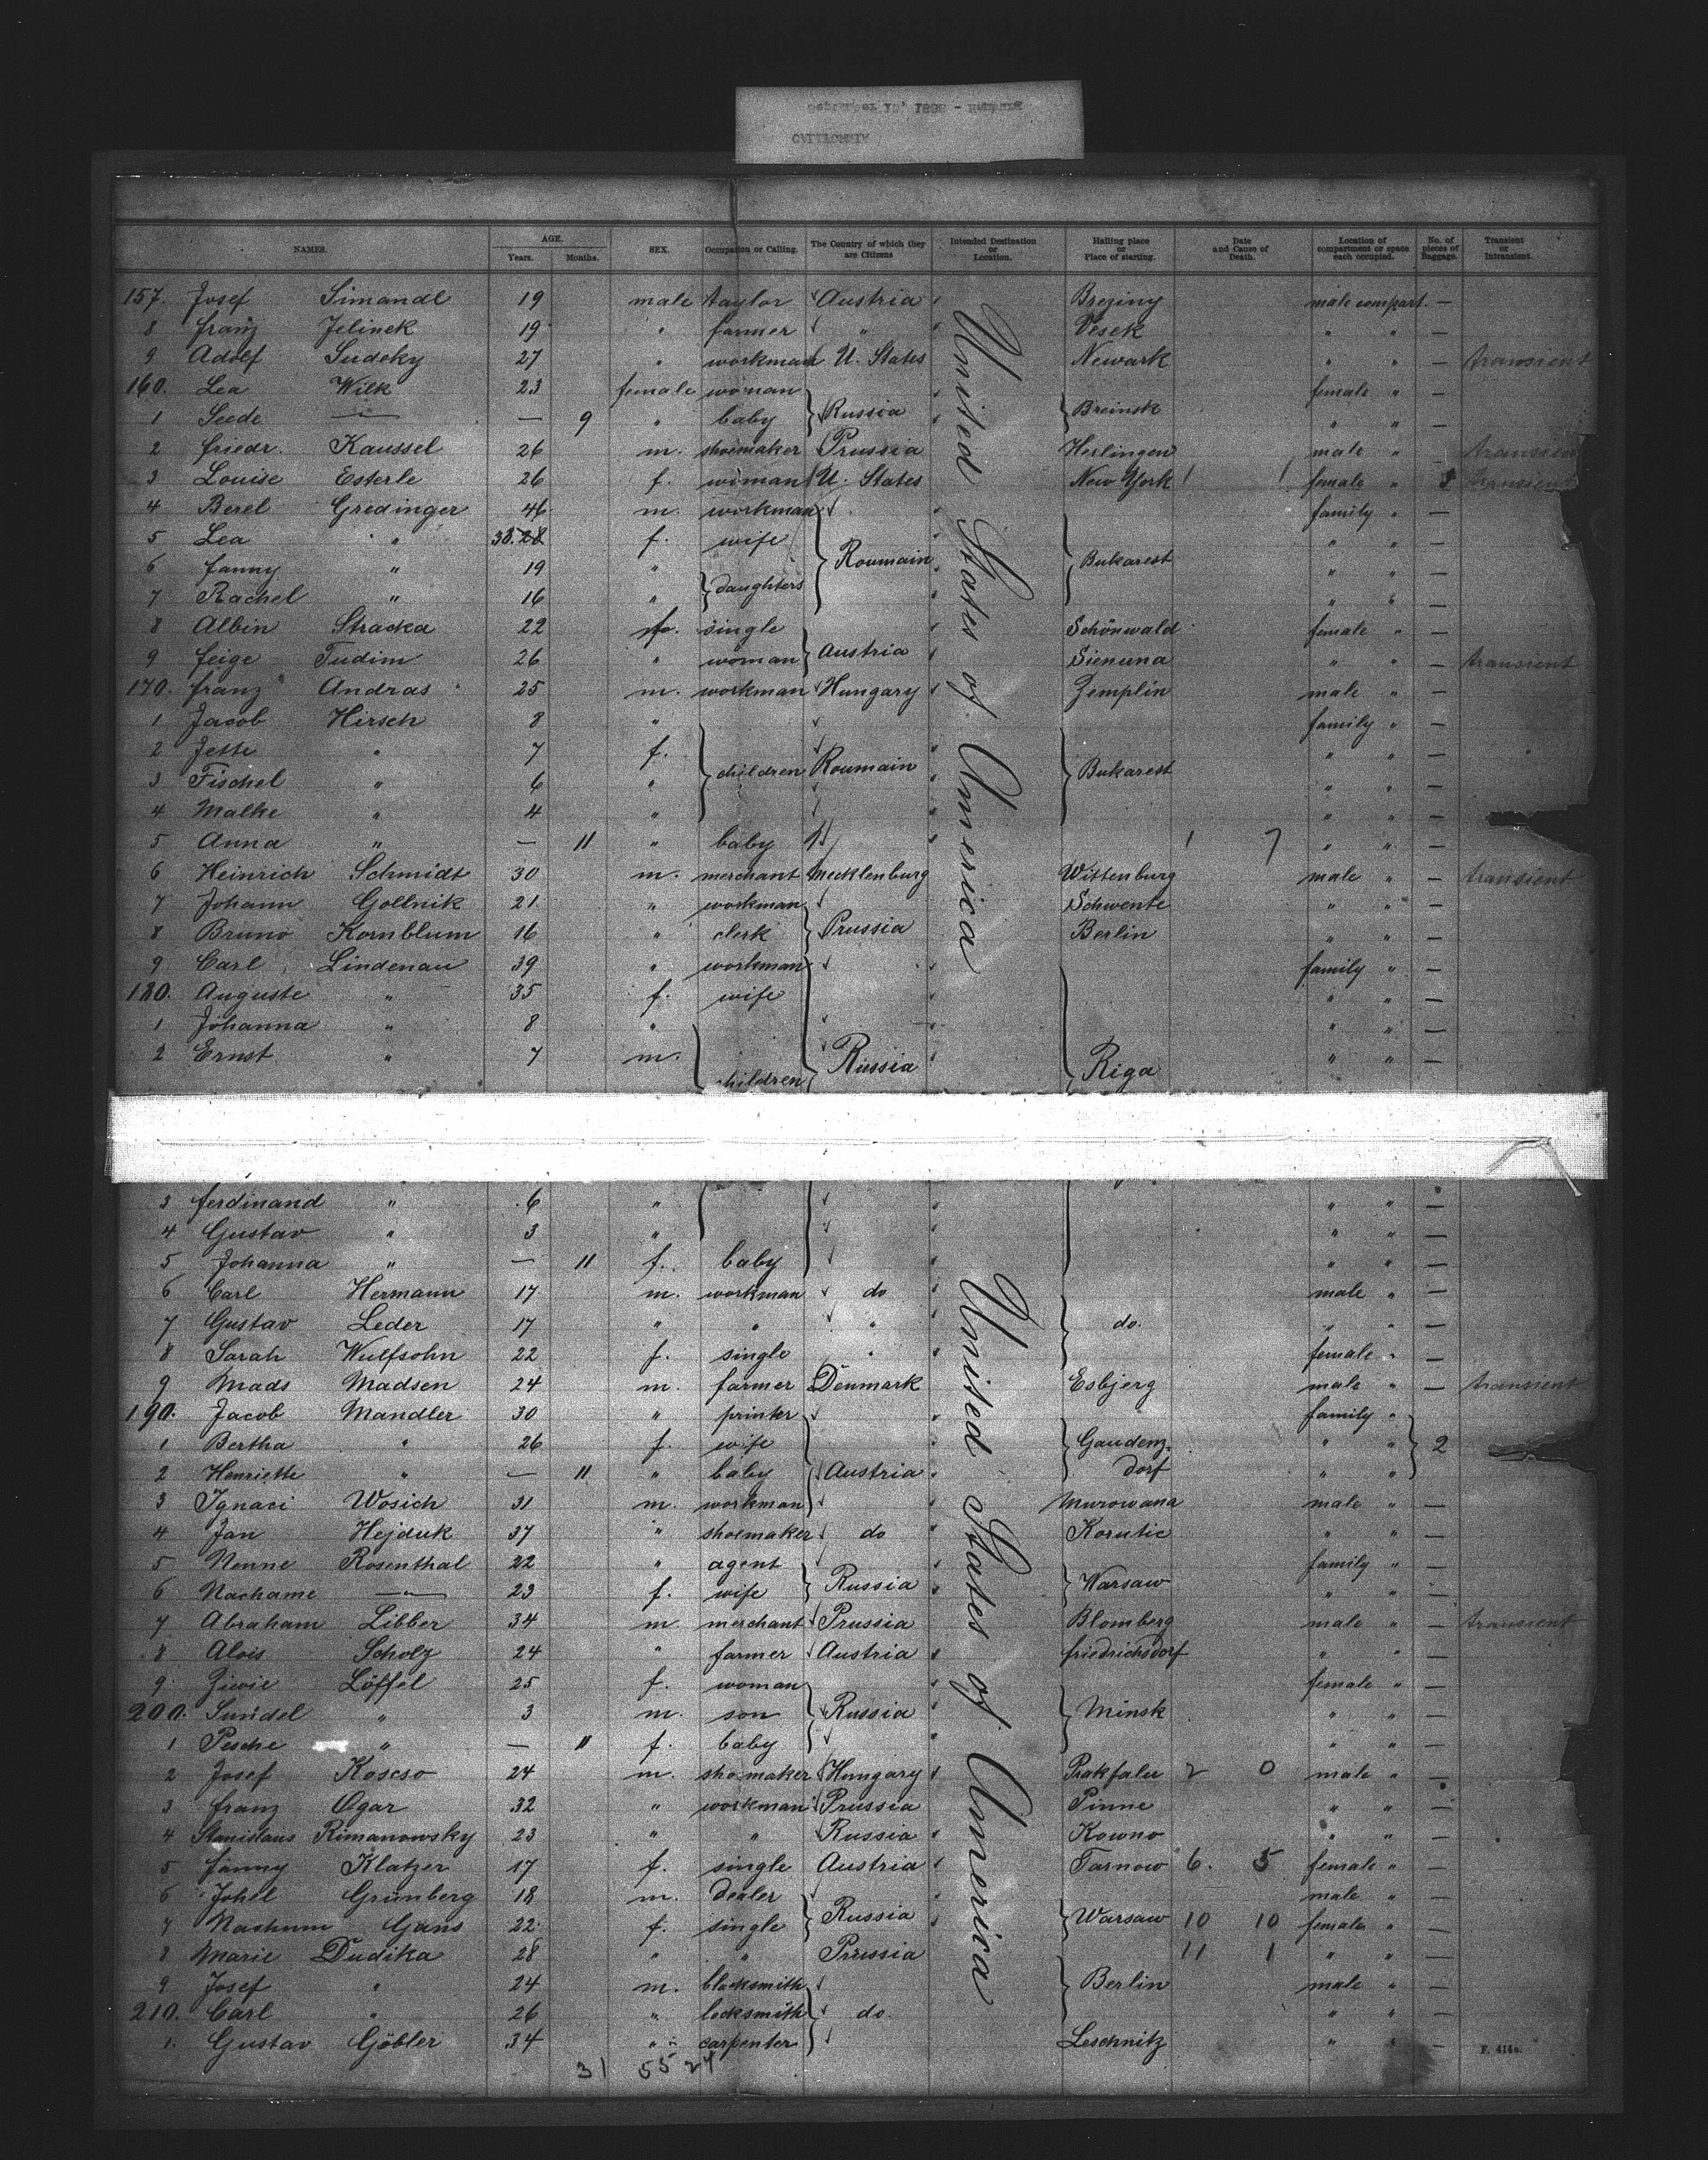 NAMES. AGE. Years. Months. SEX. Occupation or Calling. The Country of which they are Citizens Intended Destination or Location. Hailing place or Place of starting. Date and Cause of Death. Location of compartment or space each occupied. No. of pieces of Baggage. Transient or Intransient.
157. Josef Simandl 19 male taylor Austria Breziny male compart. —
8 Franz Jelinek 19 " farmer " Vesek " " —
9 Adolf Sudeky 27 " workman U. States Newark " " — transient
160. Lea Wilk 23 female woman female " —
1 Seede —"— — 9 " baby Russia Breinsk " " —
2 Friedr. Kaussel 26 m. shoemaker Prussia Herlingen male " transient
3 Louise Esterle 26 f. woman U. States New York female " transient
4 Berel Gredinger 46 m. workman family " —
5 Lea " 38. 28 f. wife " " —
6 Fanny " 19 " Roumain Bukarest " " —
7 Rachel " 16 " daughters " " —
8 Albin Stracka 22 f. single Schönwald female " —
9 Feige Tudim 26 " woman Austria Sienuna " " — transient
170. Franz Andras 25 m. workman Hungary Zemplin male " —
1 Jacob Hirsch 8 " family " —
2 Jette " 7 f. " " —
3 Fischel " 6 " children Roumain Bukarest " " —
4 Malke " 4 " " " —
5 Anna " — 11 " baby 1 7 " " —
6 Heinrich Schmidt 30 m. merchant Mecklenburg Wittenburg male " — transient
7 Johann Gollnik 21 " workman Schwente " " —
8 Bruno Kornblum 16 " clerk Prussia Berlin " " —
9 Carl Lindenau 39 " workman family " —
180. Auguste " 35 f. wife " " —
1 Johanna " 8 " " " —
2 Ernst " 7 m. children Russia Riga " " —
United States of America
3 Ferdinand " 6 " " " —
4 Gustav " 3 " " " —
5 Johanna " — 11 f. baby " " —
6 Carl Hermann 17 m. workman do male " —
7 Gustav Leder 17 " " " do. " " —
8 Sarah Wulfsohn 22 f. single " female " —
9 Mads Madsen 24 m. farmer Denmark Esbjerg male " — transient
190. Jacob Mandler 30 " printer family "
1 Bertha " 26 f. wife Gaudenz- " " 2
2 Henriette " — 11 " baby Austria dorf " "
3 Ignaci Wosich 31 m. workman Murowana male " —
4 Jan Hejduk 37 " shoemaker do Korutic " " —
5 Nenne Rosenthal 22 " agent family " —
6 Nachame —"— 23 f. wife Russia Warsaw " " —
7 Abraham Libber 34 m. merchant Prussia Blomberg male " — transient
8 Alois Scholz 24 " farmer Austria Friedrichsdorf " " —
9 Ziwie Löffel 25 f. woman female " —
200. Sundel " 3 m. son Russia Minsk " " —
1 Pesche " — 11 f. baby " " —
2 Josef Koscso 24 m. shoemaker Hungary Prakfalu 2 0 male " —
3 Franz Ogar 32 " workman Prussia Pinne " " —
4 Stanislaus Rimanowsky 23 " " Russia Kowno " " —
5 Fanny Klatzer 17 f. single Austria Tarnow 6. 5 female " —
6 Johel Grünberg 18 m. dealer male " —
7 Nachume Gans 22 f. single Russia Warsaw 10 10 female " —
8 Marie Dudika 28 " " Prussia 11 1 " " —
9 Josef " 24 m. blacksmith Berlin male " —
210. Carl " 26 " locksmith do. " " —
1. Gustav Göbler 34 " carpenter Leschnitz " " —
United States of America
31 55 24
F. 414a.